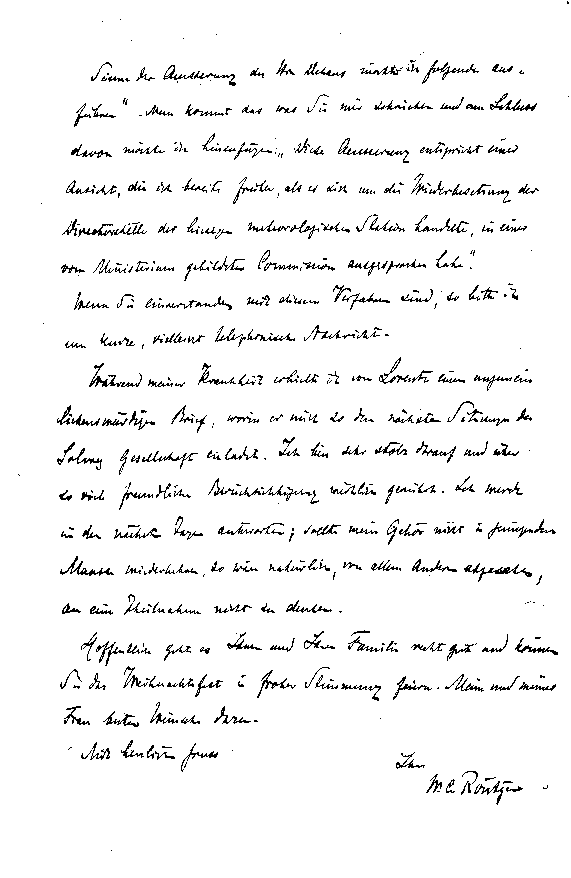 Sinne der Aeusserung des Hrn Dekans möchte ich folgendes aus-
führen". Nun kommt das was Sie mir schrieben und am Schluss
davon möchte ich hinzufügen: „Diese Aeusserung entspricht einer
Ansicht, die ich bereits früher, als es sich um die Wiederbesetzung der
Directorstelle der hiesigen meteorologischen Station handelte, in einer
vom Ministerium gebildeten Commission ausgesprochen habe".
Wenn Sie einverstanden mit diesem Verfahren sind, so bitte ich
um kurze, vielleicht telephonische Nachricht.
Während meiner Krankheit erhielt ich von Lorentz einen ungemein
liebenswürdigen Brief, worin er mich zu den nächsten Sitzungen der
Solvay Gesellschaft einladet. Ich bin sehr stolz darauf und über
so viel freundliche Berücksichtigung wirklich gerührt. Ich werde
in den nächsten Tagen antworten; sollte mein Gehör nicht in genügendem
Maasse wiederkehren, so wäre natürlich, von allem Andern abgesehen,
an eine Theilnahme nicht zu denken.
Hoffentlich geht es Ihnen und Ihrer Familie recht gut und können
Sie das Weihnachtsfest in froher Stimmung feiern. Mein und meiner
Frau besten Wünsche dazu.
Mit herzlichem Gruss
Ihr
W. C. Röntgen